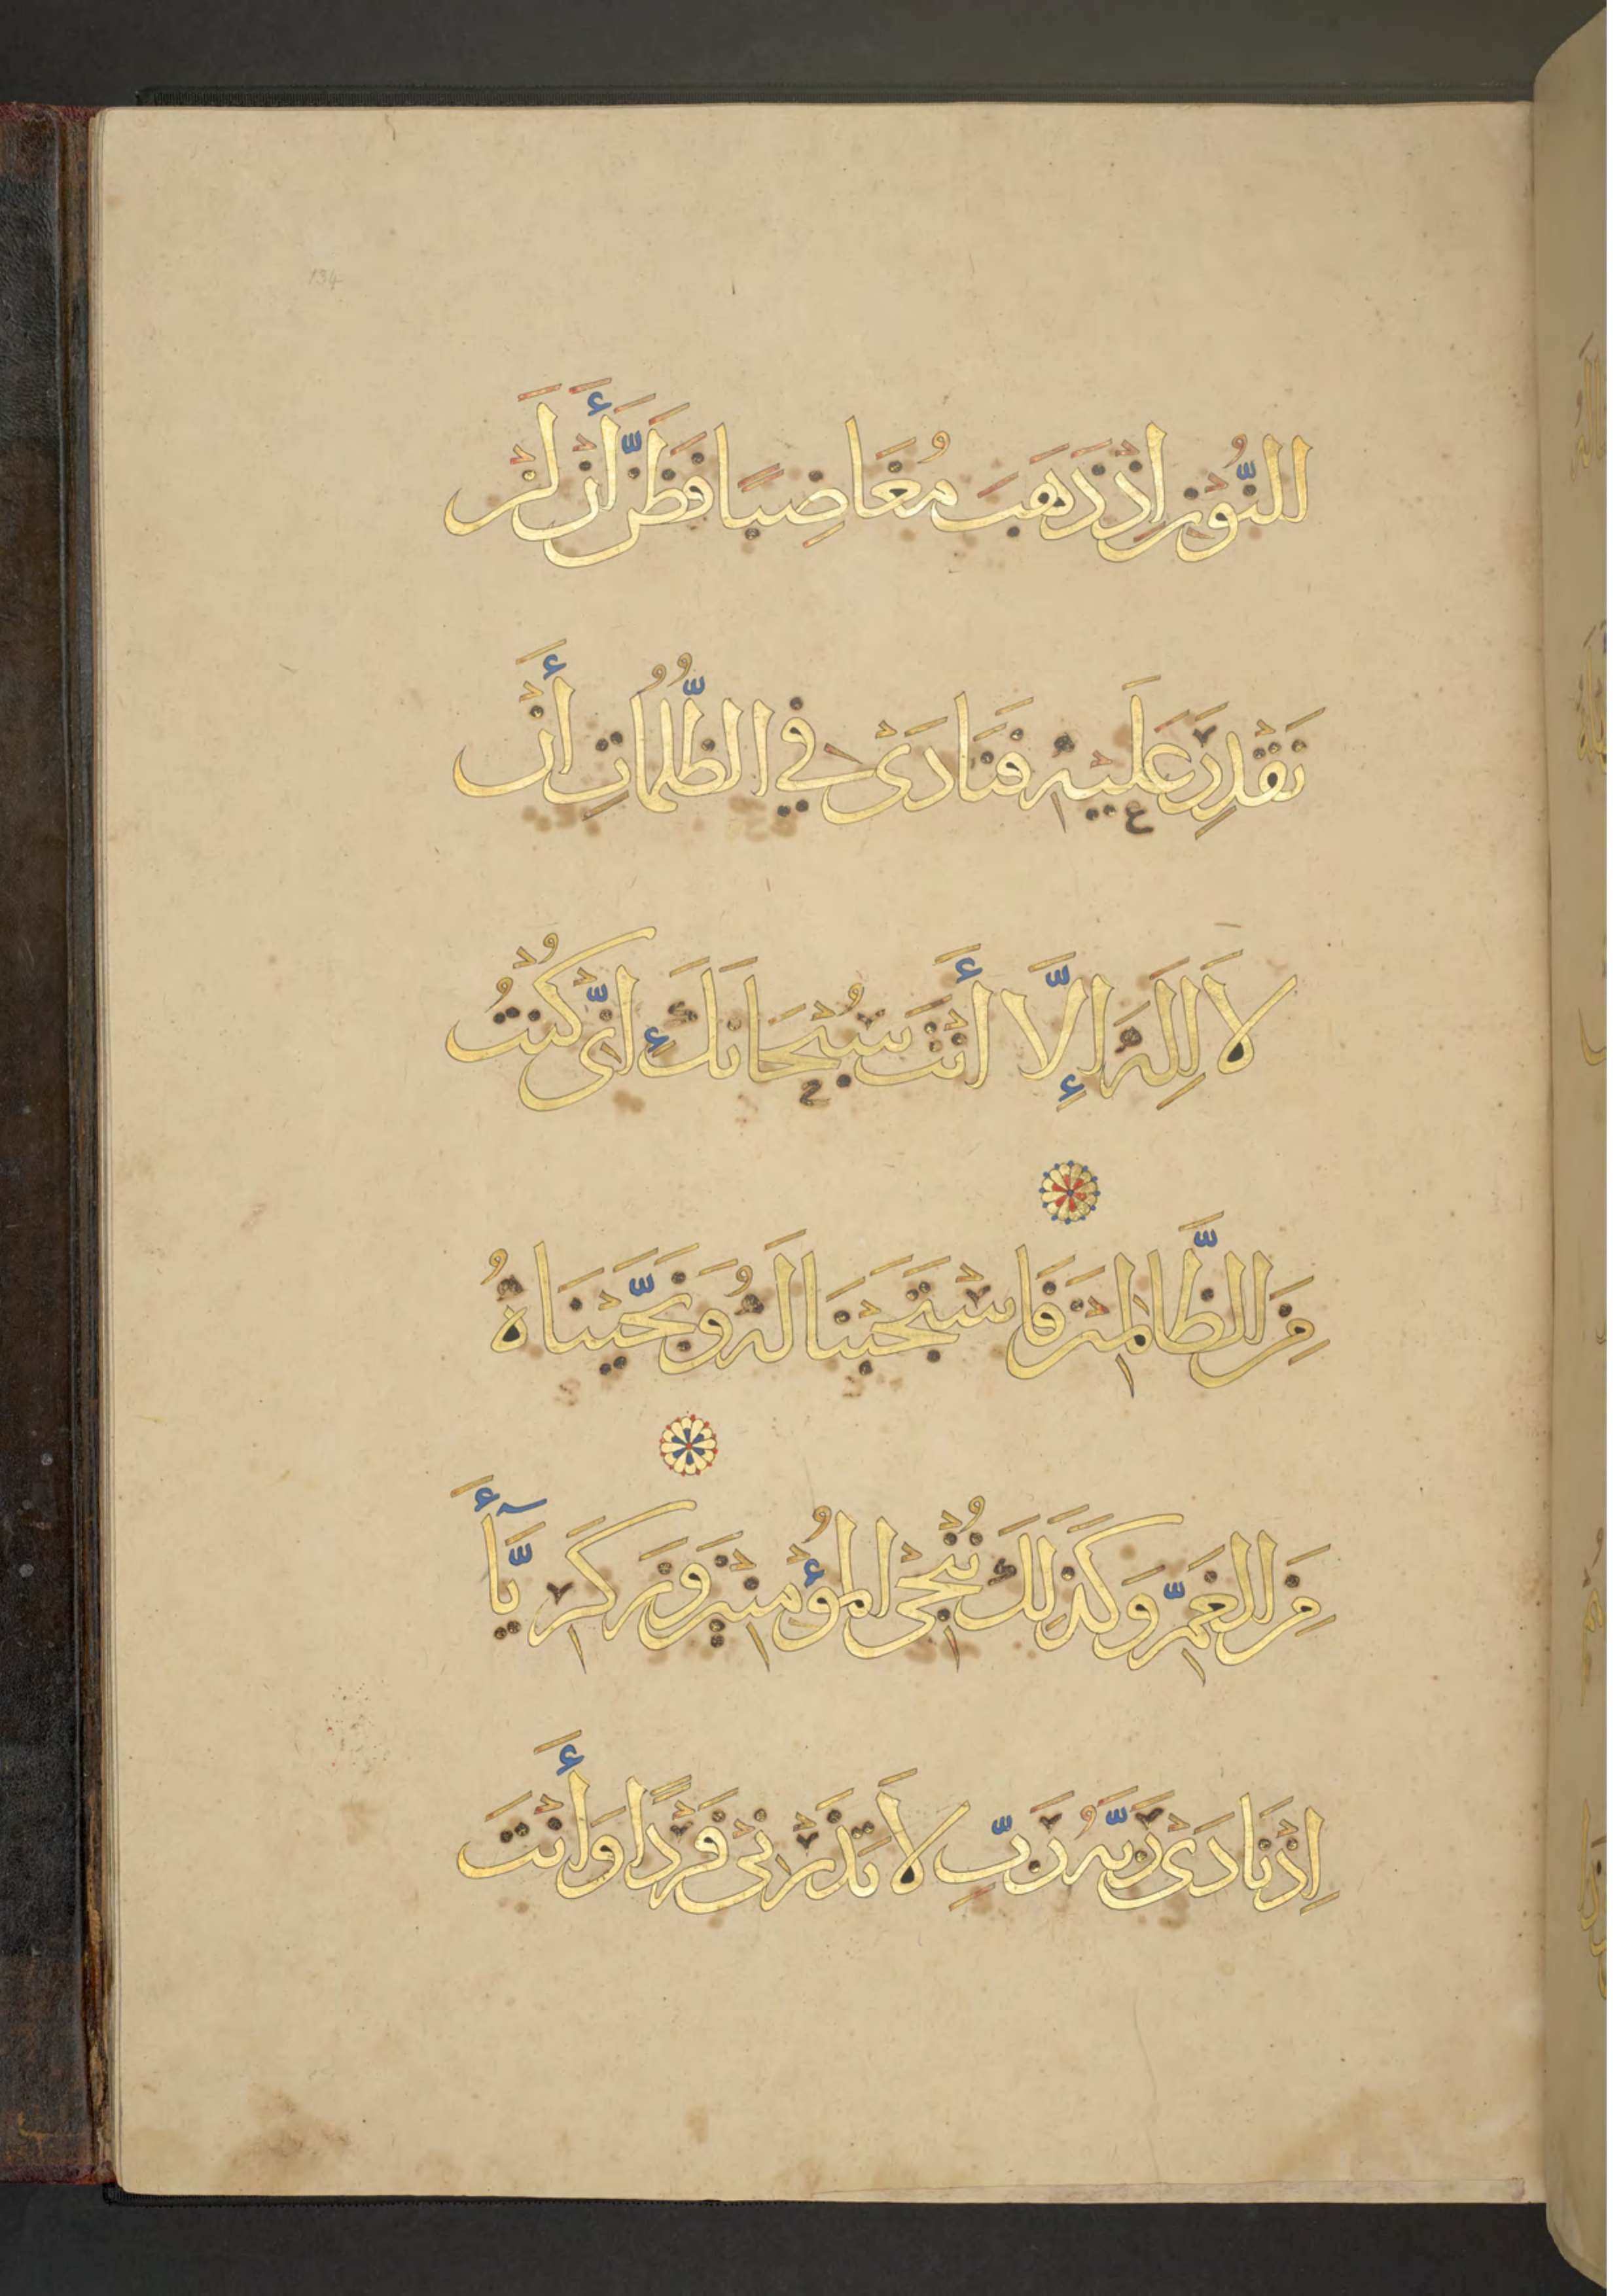 134
للنُّوْنِ اِذْ ذَهَبَ مُغَاضِبًا فَظَنَّ أَنْ لَنْ
نَقْدِرَ عَلَيْهِ فَنَادَىْ فِي الظُّلُمَاتِ أَنْ
لاَ اِلَهَ اِلَّا أَنْتَ سُبْحَانَكَ اِنَّىْ كُنْتُ
مِنَ الظَّالِمِيْنَ فَاسْتَجَبْنَا لَهُ وَنَجَّيْنَاهُ
مِنَ الغَمِّ وَكَذَلِكَ نُنْجِى المُؤْمِنِيْنَ وَزَكَرِيَّآأَ
اِذْ نَادَىْ رَبَّهُ رَبِّ لاَ تَذَرْنِىْ فَرْدًا وَأَنْتَ